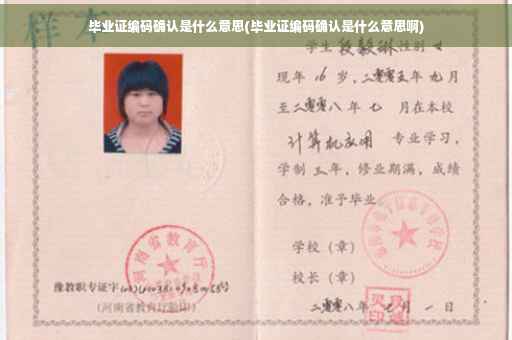 毕业证编码确认是什么意思(毕业证编码确认是什么意思啊)
样本
学生 段毅琳 性别 女
现年 16 岁，二零零五年 九月
至二零零八年 七 月在本校
计算机应用 专业学习，
学制 三 年，修业期满，成绩
合格，准予毕业
学校（章）
校长（章）
二零零八年 七月 一 日
河南省教育厅
豫教职专证字
(河南省教育厅验印)